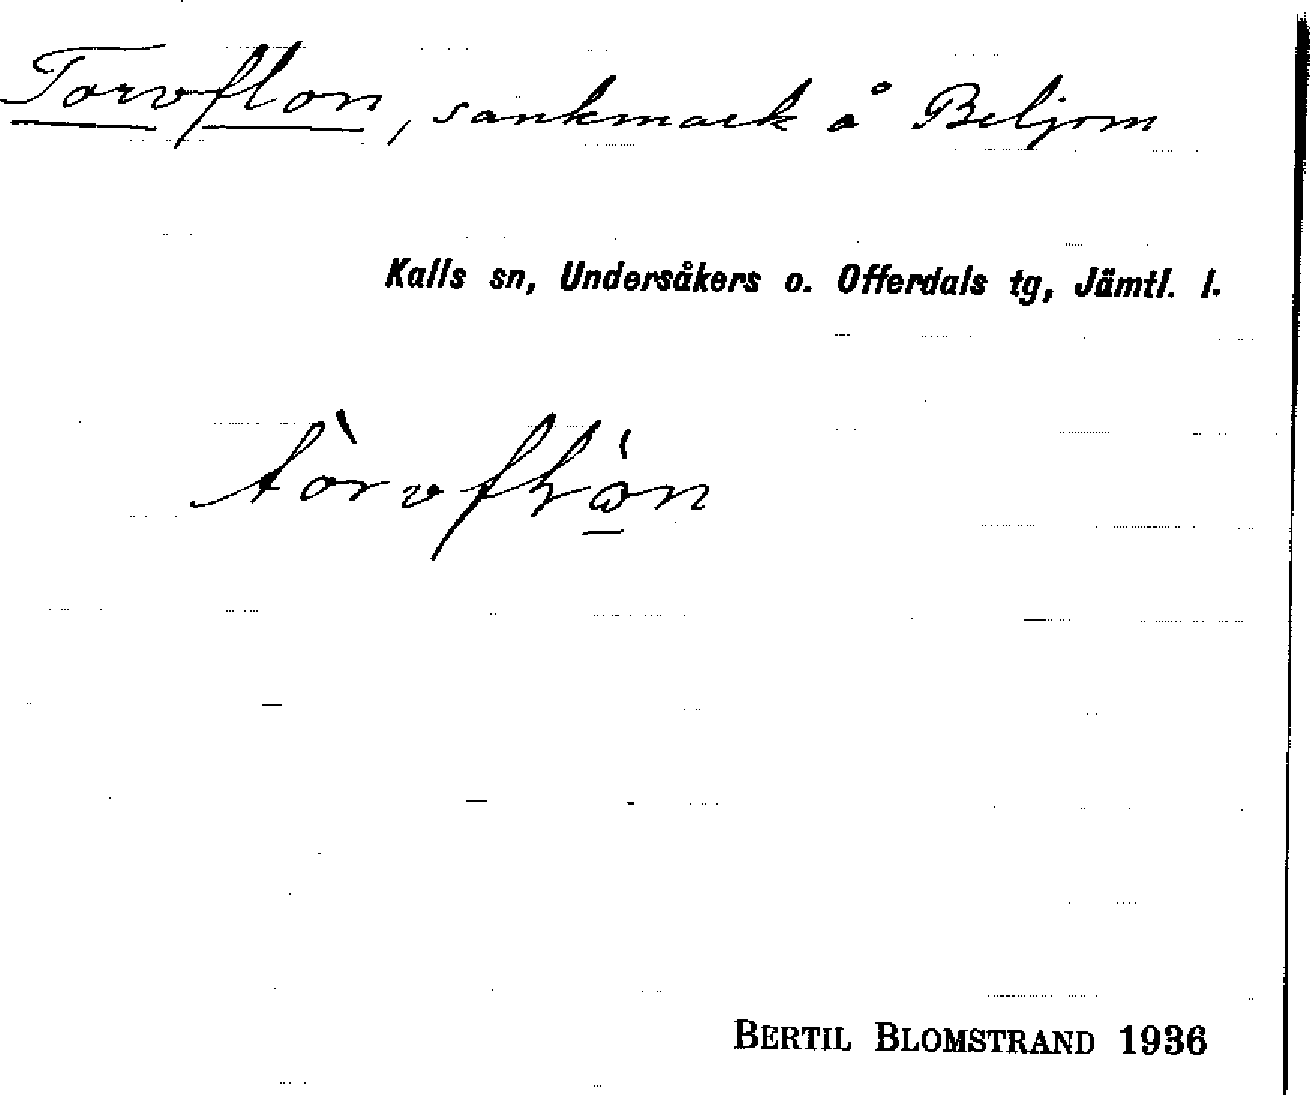 Torvflon, sankmark å Beljom
Kalls sn, Undersåkers o. Offerdals tg, Jämtl. l.
BERTIL BLOMSTRAND 1936